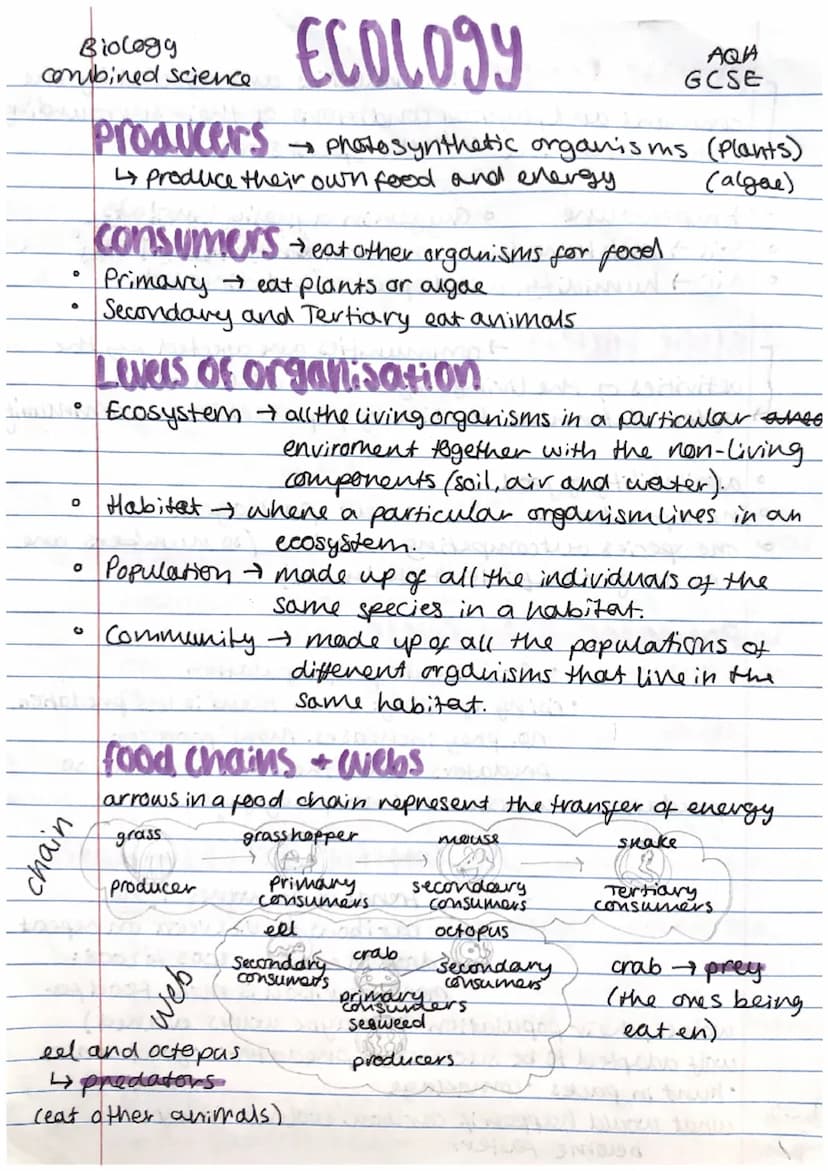 Biology
combined science
ECOLOGY
AQA
GCSE
producers → photosynthetic organisms (plants)
↳ produce their own food and energy (algae)
consumers → eat other organisms for food
• Primary → eat plants or algae
• Secondary and Tertiary eat animals
Levels of organisation
• Ecosystem → all the living organisms in a particular
enviroment together with the non-living
components (soil, air and water).
• Habitat → where a particular organism lives in an
ecosystem.
• Population → made up of all the individuals of the
same species in a habitat.
• Community → made up of all the populations of
different organisms that live in the
same habitat.
food chains + webs
arrows in a food chain represent the transfer of energy
chain
grass → grasshopper → mouse → snake
producer primary consumers secondary consumers Tertiary consumers
web
eel octopus
secondary consumers crab secondary consumers
primary consumers
seaweed
producers
crab → prey
(the ones being
eaten)
eel and octopus
↳ predators
(eat other animals)